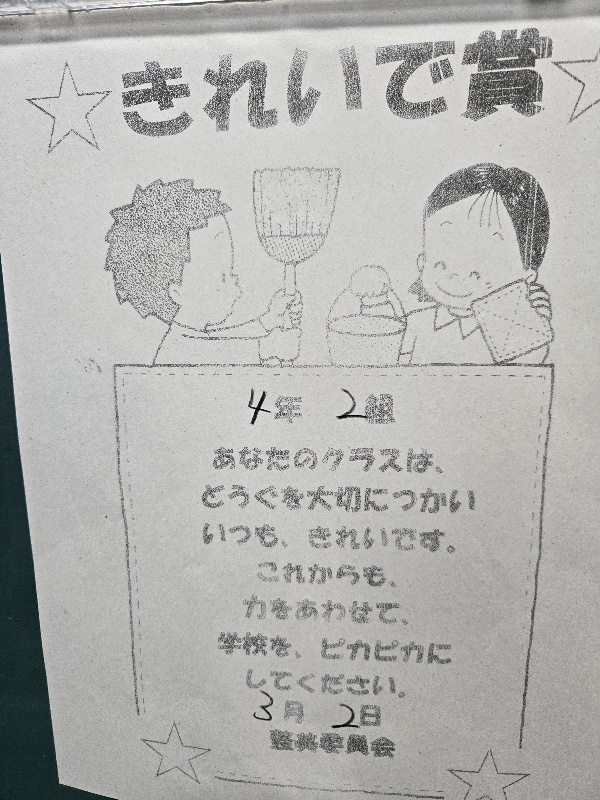 きれいで賞
4年 2組
あなたのクラスは、
どうぐを大切につかい
いつも、きれいです。
これからも、
力をあわせて、
学校を、ピカピカに
してください。
3月 2日
整美委員会